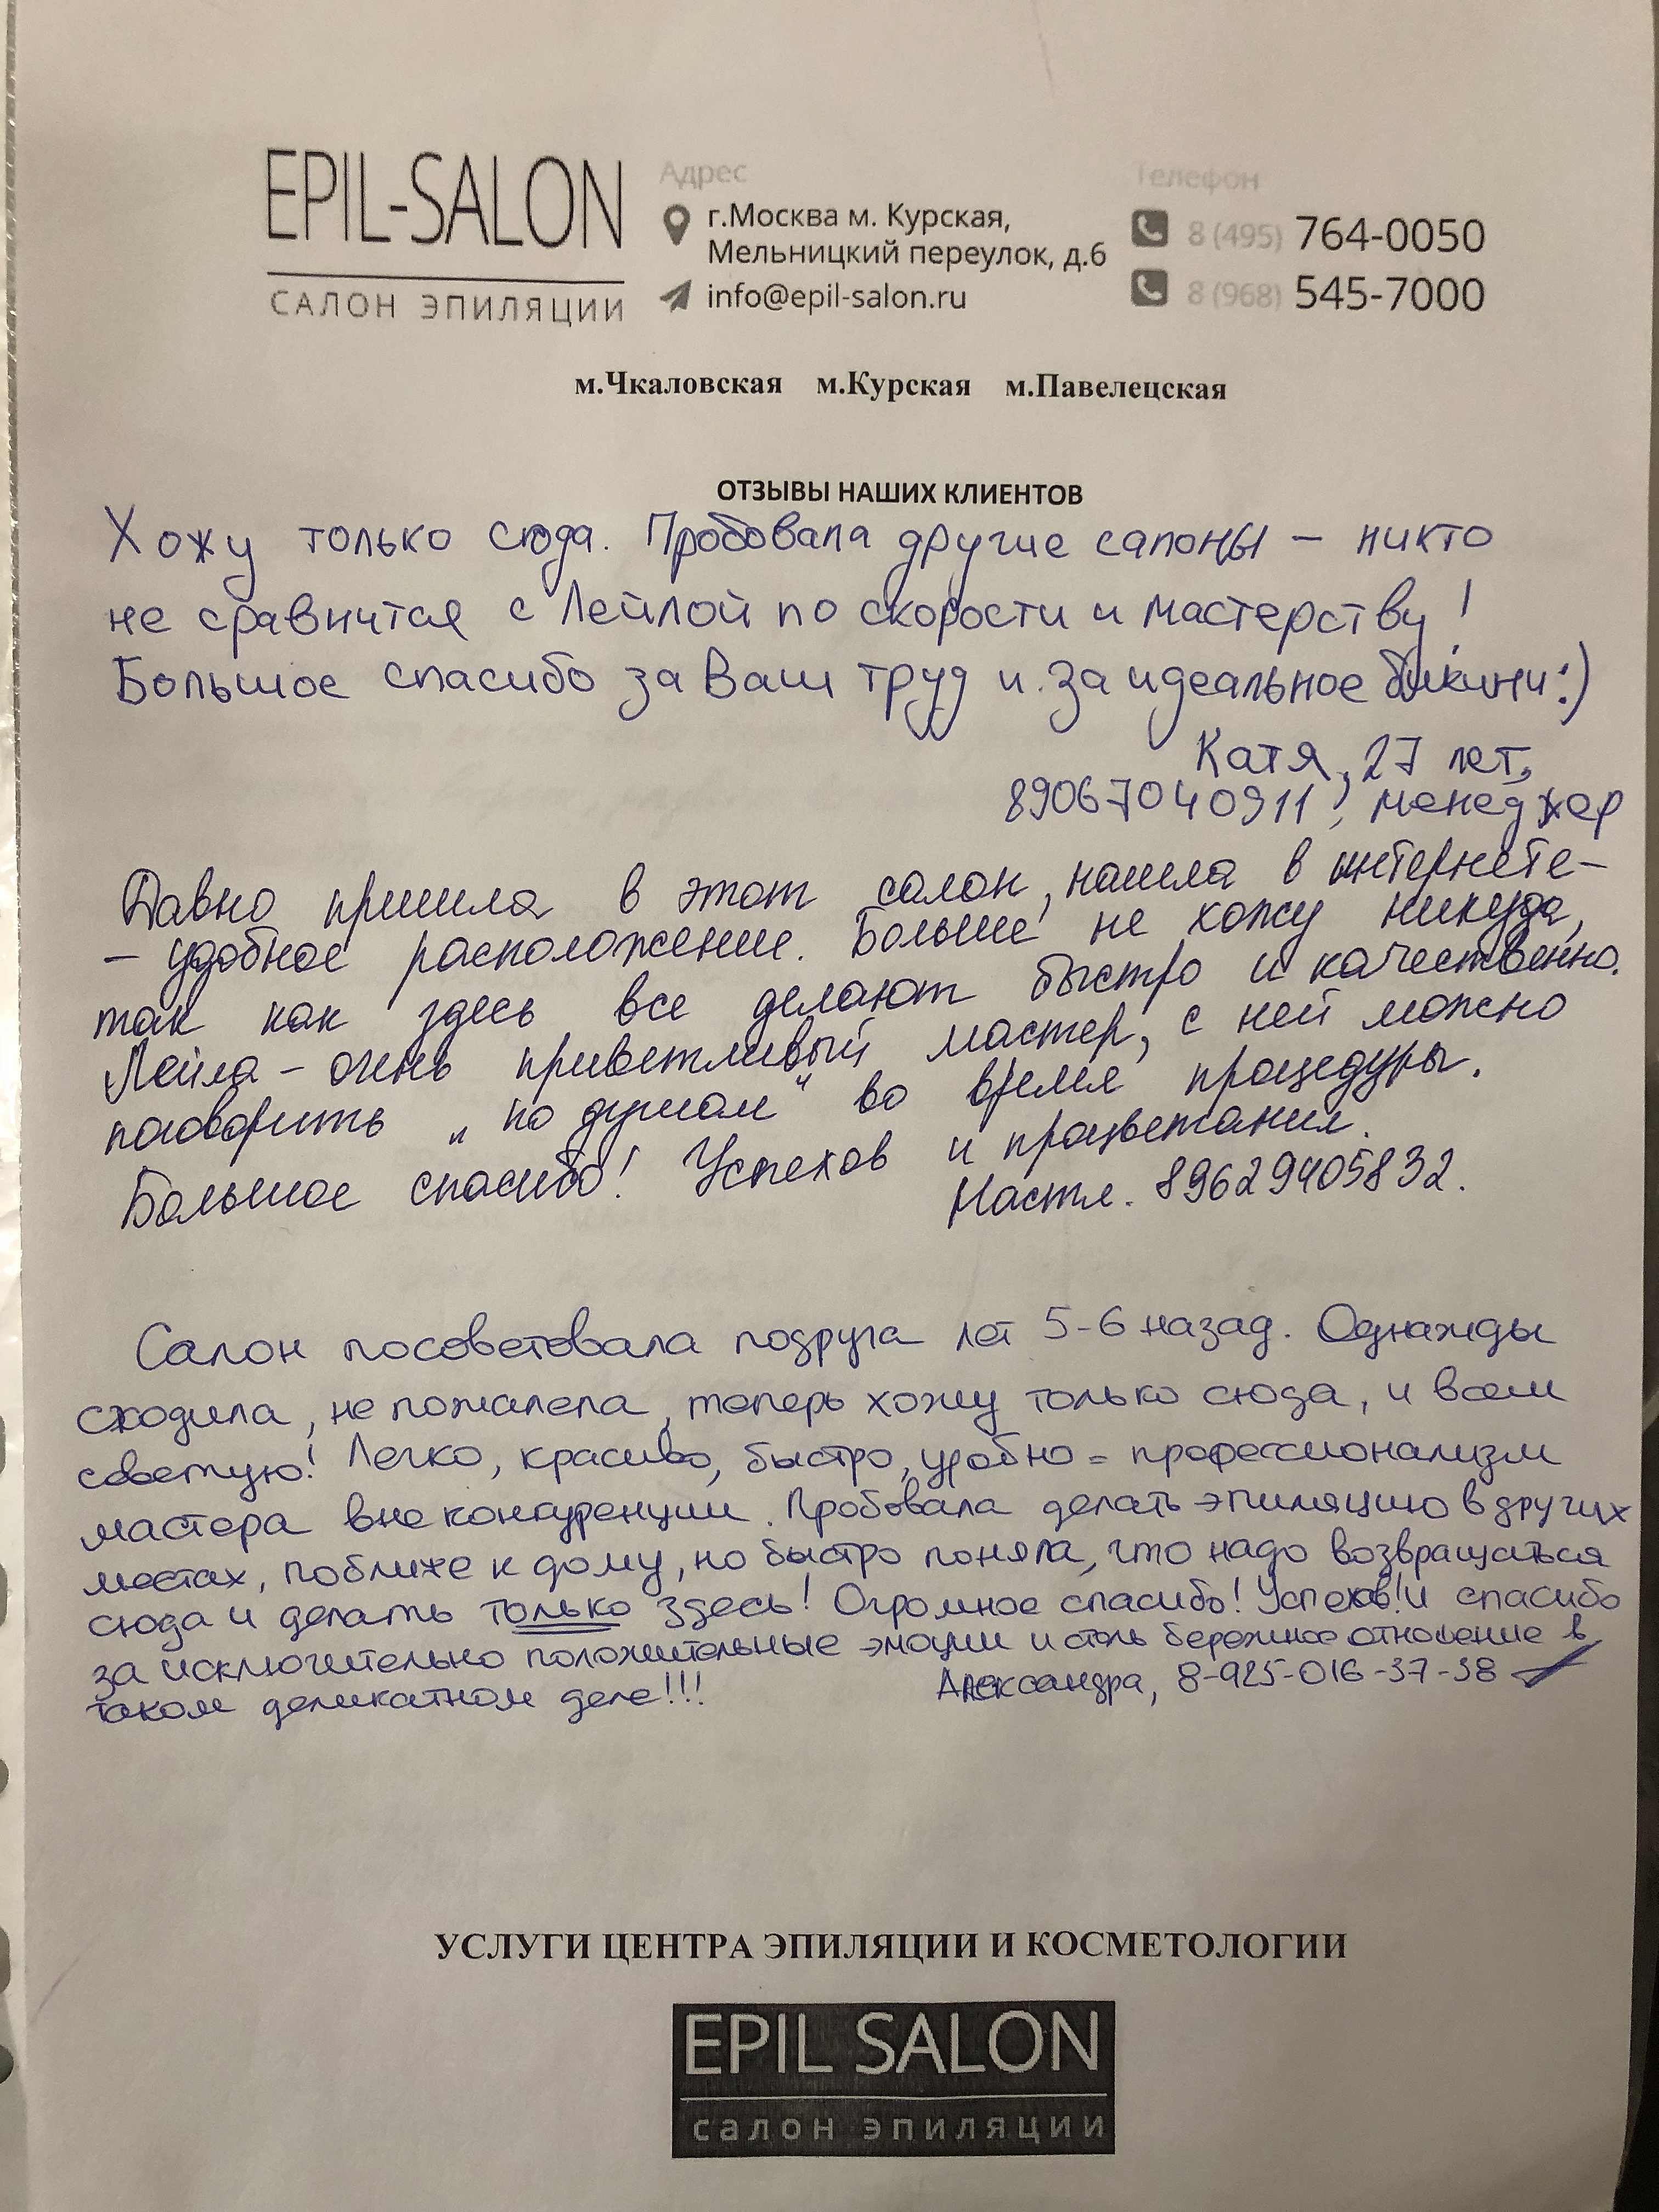 EPIL-SALON
САЛОН ЭПИЛЯЦИИ
Адрес
г.Москва м. Курская,
Мельницкий переулок, д.6
info@epil-salon.ru
Телефон
8 (495) 764-0050
8 (968) 545-7000
м.Чкаловская м.Курская м.Павелецская
ОТЗЫВЫ НАШИХ КЛИЕНТОВ
Хожу только сюда. Пробовала другие салоны – никто
не сравнится с Лейлой по скорости и мастерству!
Большое спасибо за Ваш труд и за идеальное бикини :)
Катя, 27 лет,
89067040911, менеджер
Давно пришла в этот салон, нашла в интернете –
– удобное расположение. Больше не хожу никуда,
так как здесь все делают быстро и качественно.
Лейла – очень приветливый мастер, с ней можно
поговорить „по душам“ во время процедуры.
Большое спасибо! Успехов и процветания.
Настя. 89629405832.
Салон посоветовала подруга лет 5-6 назад. Однажды
сходила, не пожалела, теперь хожу только сюда, и всем
советую! Легко, красиво, быстро, удобно = профессионализм
мастера вне конкуренции. Пробовала делать эпиляцию в других
местах, поближе к дому, но быстро поняла, что надо возвращаться
сюда и делать только здесь! Огромное спасибо! Успехов! и спасибо
за исключительно положительные эмоции и столь бережное отношение в
таком деликатном деле!!!
Александра, 8-925-016-37-38
УСЛУГИ ЦЕНТРА ЭПИЛЯЦИИ И КОСМЕТОЛОГИИ
EPIL SALON
салон эпиляции